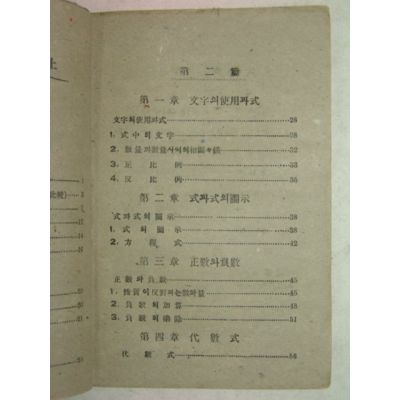 第二篇
第一章 文字의使用과式
文字의使用과式 28
1. 式中의文字 28
2. 數量과數量사이의相關 32
3. 正比例 33
4. 反比例 35
第二章 式과式의圖示
式과式의圖示 38
1. 式의圖示 38
2. 方程式 42
第三章 正數와負數
正數와負數 45
1. 反對되는數와量 45
2. 負數의加算 48
3. 負數의乘除 51
第四章 代數式
代數式 56